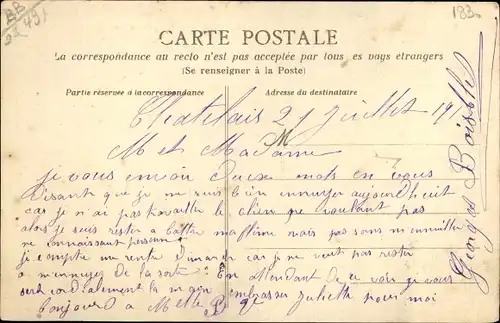 183
CARTE POSTALE
La correspondance au recto n'est pas acceptée par tous les pays étrangers
(Se renseigner à la Poste)
Partie réservée à la correspondance
Adresse du destinataire
Chatelais 21 Juillet 191
M
M et Madame
je vous envoi deux mots en vous
disant que je me suis bien ennuyer aujourd'huit
car je n'ai pas travailler le chien ne voulant pas
alors je suis rester a battre ma flème mais pas sans m'ennuiller
ne connaissant personne
je compte me rendre dimanche car je ne veut pas rester
a m'ennuyez de la sorte En attendant de ce voir je vous
serre cordialement la main embrasser Juliette pour moi
bonjour a Melle B
Georges Boisblet